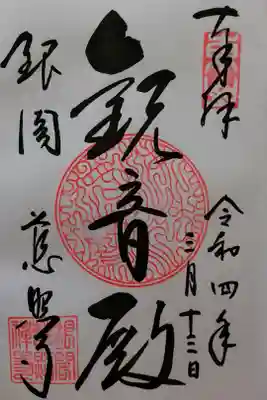 奉拝
令和四年
三月十三日
観音殿
銀閣
慈照寺